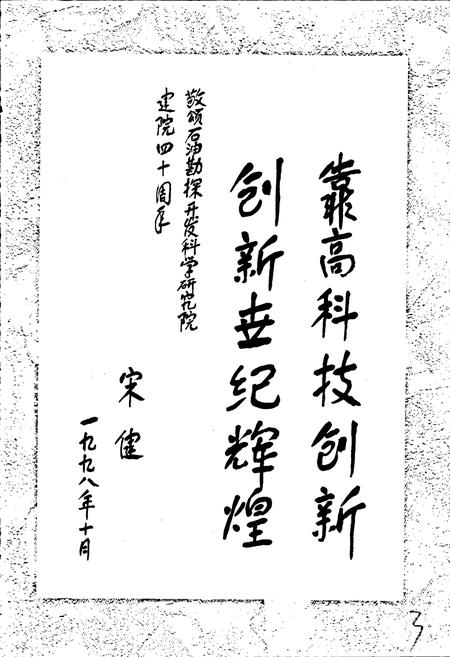 靠高科技创新
创新世纪辉煌
敬颂石油勘探开发科学研究院
建院四十周年
宋健
一九九八年十月
3